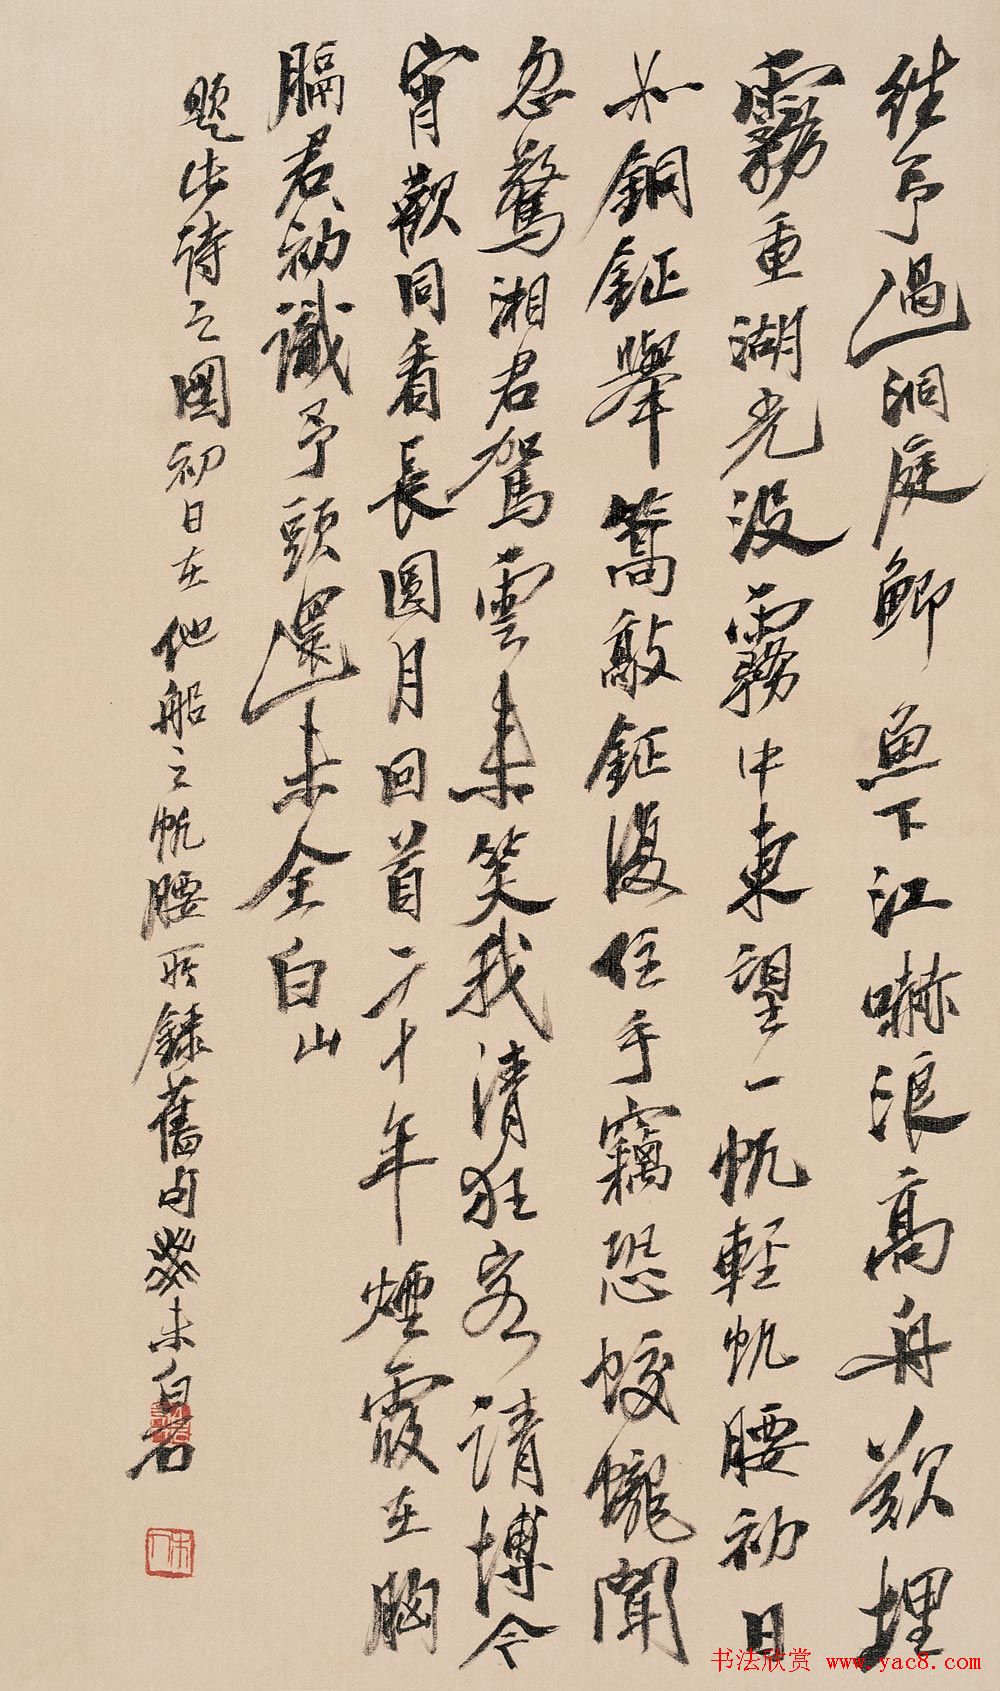 往予過洞庭鯽魚下江嚇浪高舟欺埋
霧重湖光没霧中東望一帆輕帆腰初日
如銅鉦舉篙敲鉦復住手竊恐蛟蠬聞
忽驚湘君駕雲来笑我清狂客請博今
宵歡同看長圓月回首二十年煙霞在胸
膈君初識予頭還未全白山
題此詩之圖初日在他船之帆腰所錄舊句癸未白石
書法欣赏 www.yac8.com